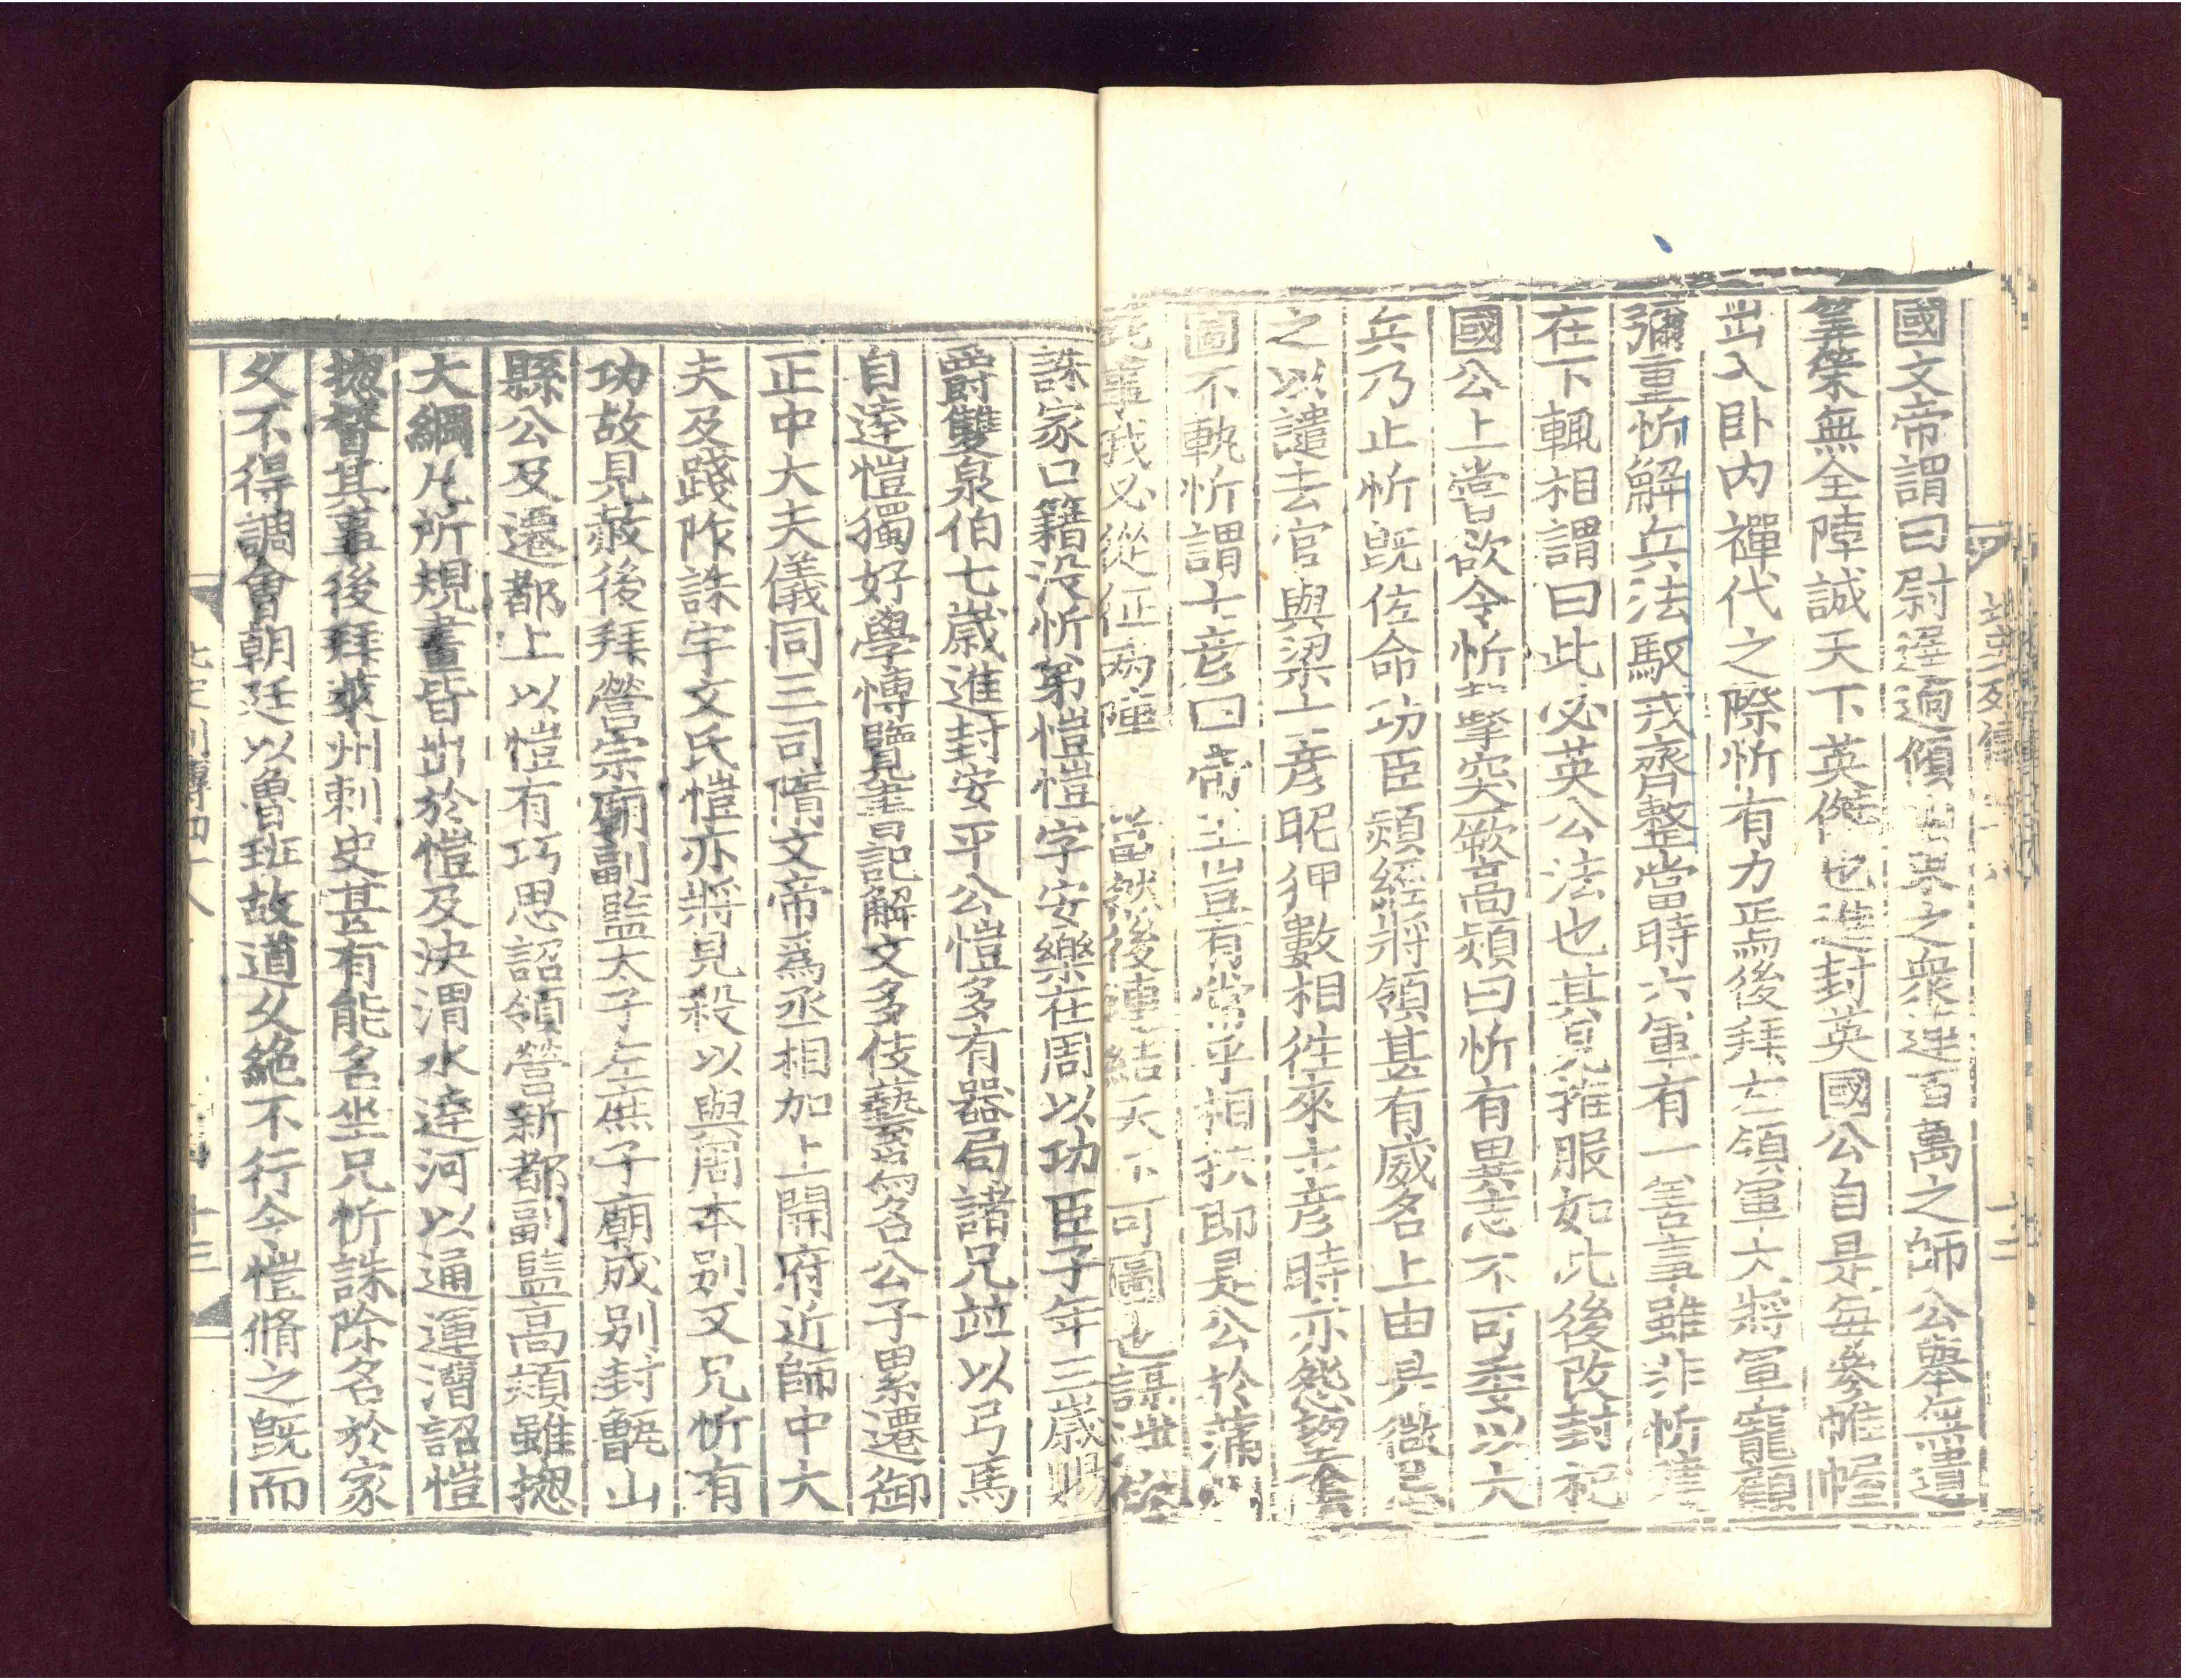 國文帝謂曰尉逈傾山東之衆連百萬之師公舉無遺
筭策無全陣誠天下英傑也進封英國公自是每參帷幄
出入卧内禪代之際忻有力焉後拜右領軍大將軍寵顧
彌重忻解兵法馭戎齊整當時六軍有一善事雖非忻建
在下輒相謂曰此必英公法也其見推服如此後改封杞
國公上嘗欲令忻擊突厥高熲曰忻有異志不可委以大
兵乃止忻旣佐命功臣頻經將領甚有威名上由是微忌
之以譴去官與梁士彥昵狎數相往來士彥時亦怨望隂
圖不軌忻謂士彥曰帝王豈有常乎相扶即是公於蒲州
事我必從征兩陣當然後連結天下可圖也謀泄伏
誅家口籍没忻弟愷愷字安樂在周以功臣子年三歲賜
爵雙泉伯七歲進封安平公愷多有器局諸兄竝以弓馬
自達愷獨好學博覽書記解文多伎藝爲名公子累遷御
正中大夫儀同三司隋文帝爲丞相加上開府近師中大
夫及踐阼誅宇文氏愷亦將見殺以與周本别又兄忻有
功故見赦後拜營宗廟副監太子左庶子廟成别封甑山
縣公及遷都上以愷有巧思詔領營新都副監高熲雖揔
大綱凡所規畫皆出於愷及決渭水達河以通運漕詔愷
揔督其事後拜萊州刺史甚有能名坐兄忻誅除名於家
久不得調會朝廷以魯班故道久絶不行令愷脩之旣而
列傳四十八
十三